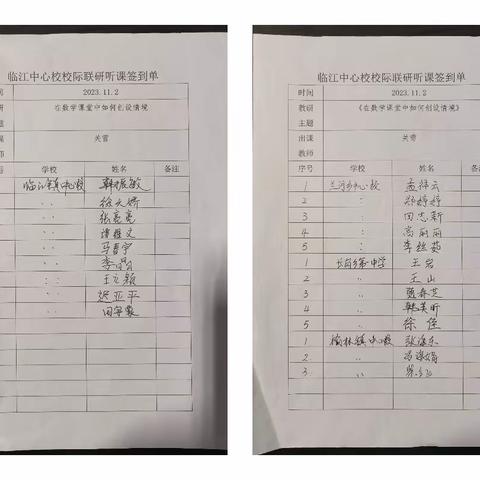 临江中心校校际联研听课签到单
间 2023.11.2
研 在数学课堂中如何创设情境
题
课 关雪
师
学校 姓名 备注
临江镇中心校 韩振敏
〃 徐大娇
〃 张亮亮
〃
〃 马春宇
〃
〃 王立颖
〃 迟亚平
〃
临江中心校校际联研听课签到单
时间 2023.11.2
教研 《在数学课堂中如何创设情境》
主题
出课 关雪
教师
序号 学校 姓名 备注
1 兰河乡中心校 孟祥云
2 〃 郑婷婷
3 〃 田志新
4 〃 高丽丽
5 〃 李丝茹
1 王岩
2 〃 王山
3 〃 贾春芝
4 〃 韩美昕
5 〃 徐佳
1 榆林镇中心校
2 〃
3 〃